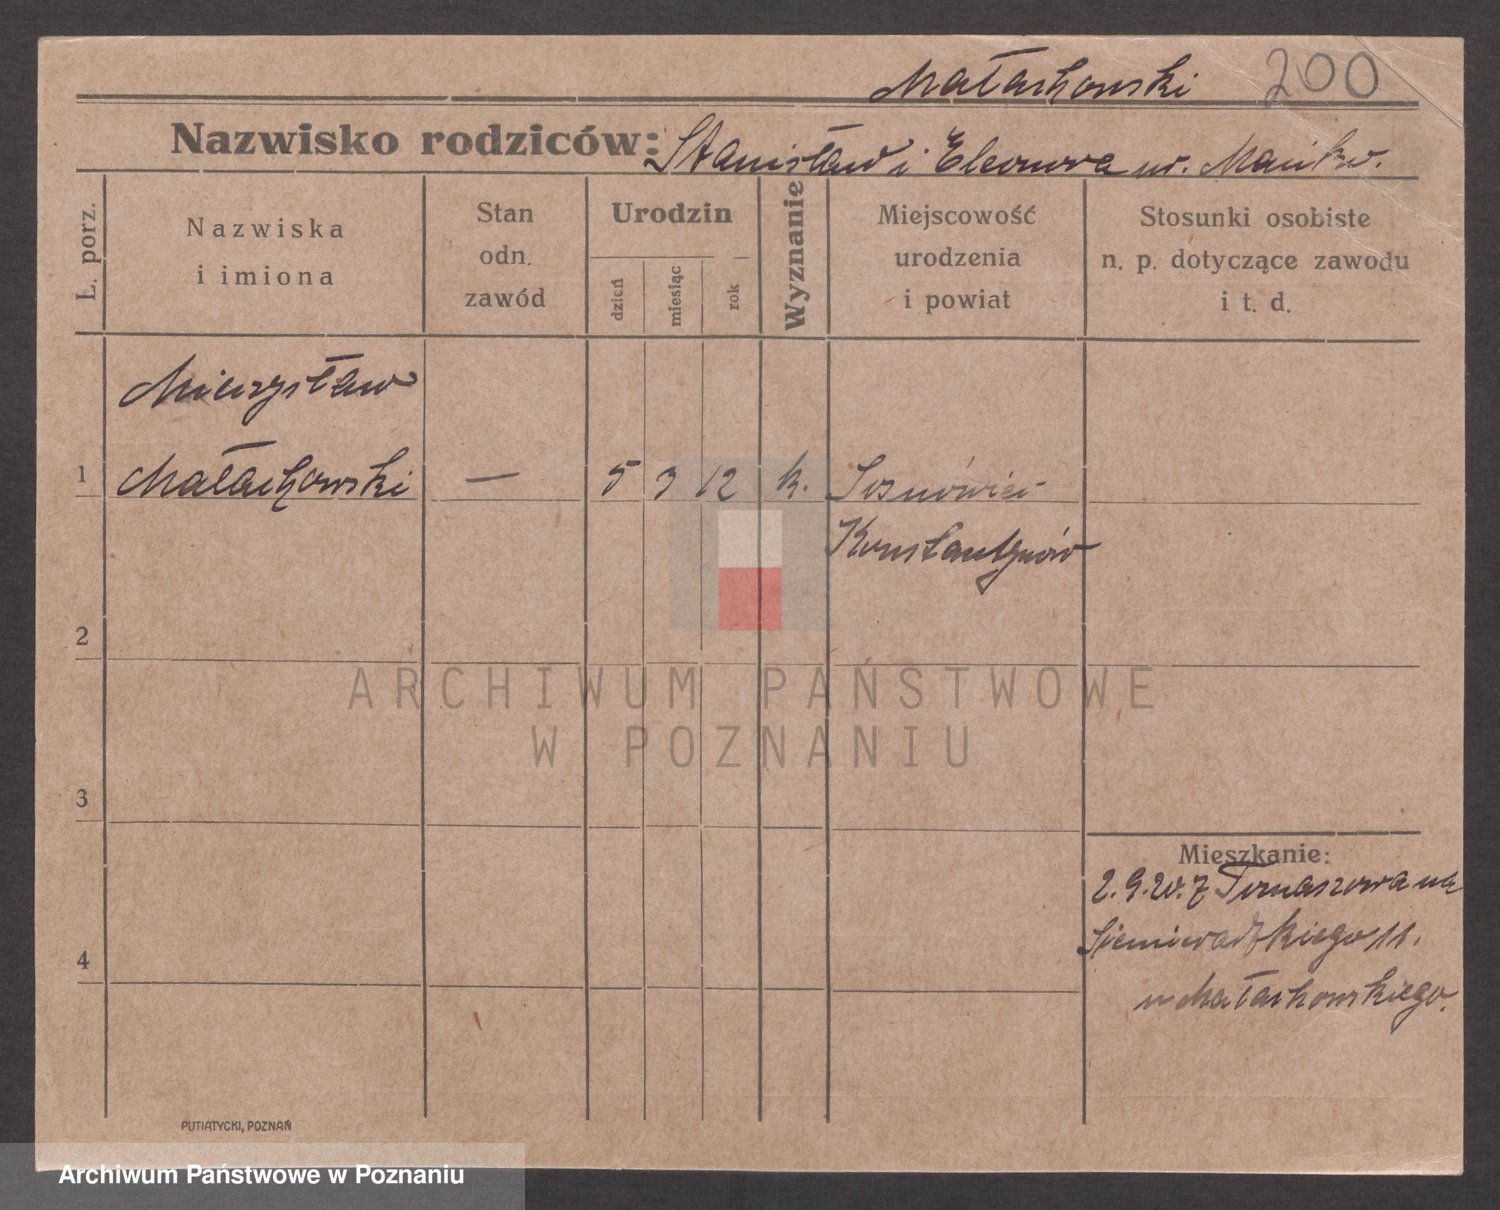 Małachowski 200
Nazwisko rodziców: Stanisław i Eleonora ur.
L. porz.
Nazwiska
i imiona
Stan
odn.
zawód
Urodzin
dzień
miesiąc
rok
Wyznanie
Miejscowość
urodzenia
i powiat
Stosunki osobiste
n. p. dotyczące zawodu
i t. d.
Mieczysław
1 Małachowski — 5 3 12 k. Sosnówiec
Konstantynów
2
ARCHIWUM PAŃSTWOWE
W POZNANIU
3
Mieszkanie:
2.9.20. z Tomaszowa na
Siemieradzkiego 11.
4
u Małachowskiego.
PUTIATYCKI, POZNAŃ
Archiwum Państwowe w Poznaniu